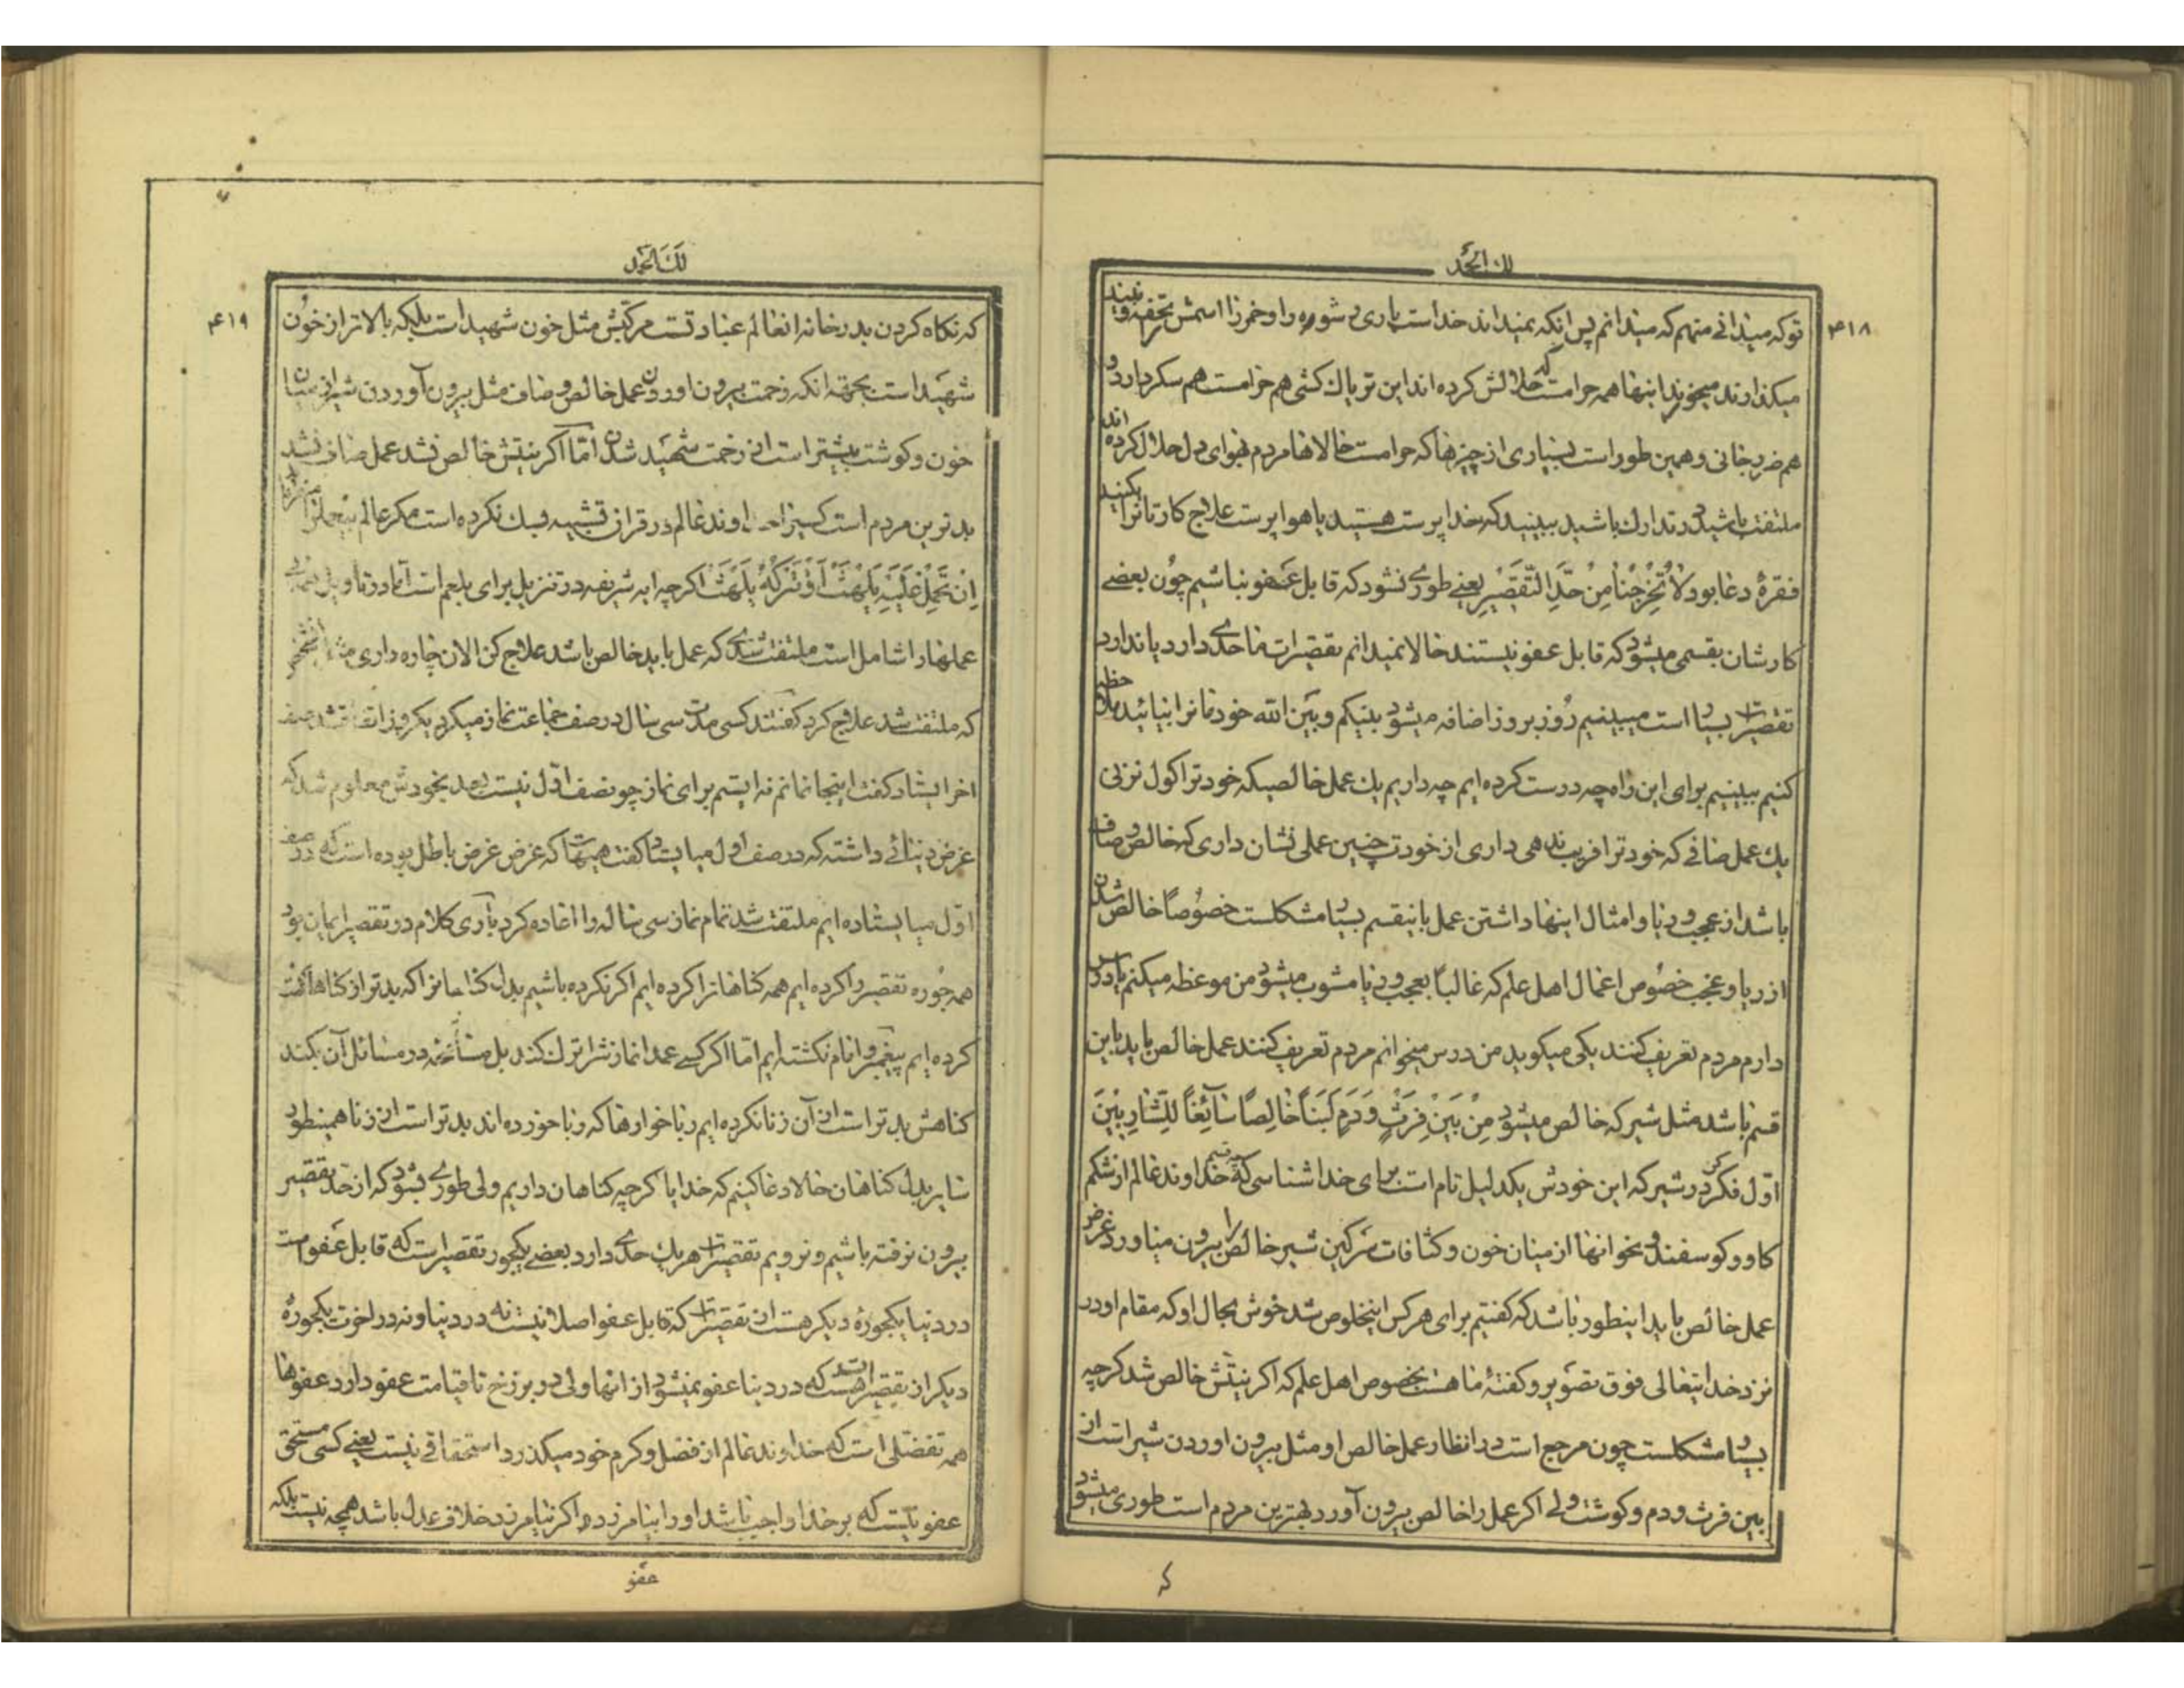 لك الحمد
۴۱۸
تو که میدانی منهم که میدانم پس انکه نمیداند خداست باری شوره را و خمر را اسمش تحفه
میکذارند میخورند اینها همه حرامست که حلالش کرده اند این تریاك کشی هم حرامست هم سکر دارد و
هم ضرر جانی و همین طور است بسیاری از چیزها که حرامست حالاها مردم بهوای دل حلال کرده اند
ملتفت باشید در تدارك باشید ببینید که خدا پرست هستید یا هوا پرست علاج کارتانرا بکنید
فقرهٔ دعا بود لا تُخْرِجْنا مِنْ حَدِّ التَّقْصیرِ یعنے طورے نشود که قابل عفو نباشیم چون بعضے
کارشان بقسمی میشود که قابل عفو نیستند حالا نمیدانم تقصیرات ما حدے دارد یا ندارد
تقصیرات بسیار است میبینیم روز بروز اضافه میشود بینکم و بین الله خودمانرا بیائید ملاحظه
کنیم ببینیم برای این راه چه درست کرده ایم چه داریم یك عمل خالصیکه خودترا کول نزنی
یك عمل صافے که خودترا فریب ندهی داری از خودت چنین عملی نشان داری که خالص و صاف
باشد از عجب و ریا و امثال اینها داشتن عمل باینقسم بسیار مشکلست خصوصاً خالص شدن
از ریا و عجب خصوص اعمال اهل علم که غالباً بعجب و ریا مشوب میشود من موعظه میکنم یا درس
دارم مردم تعریف کنند یکی میکوید من درس میخوانم مردم تعریف کنند عمل خالص باید باین
قسم باشد مثل شیر که خالص میشود مِنْ بَیْنِ فَرْثٍ وَ دَمٍ لَبَناً خالِصاً سآئِغاً لِلشّارِبینَ
اوّل فکر کن در شیر که این خودش یکدلیل تام است برای خدا شناسی که چه قسم خداوند عالم از شکم
کاو و کوسفند و نحو انها از میان خون و کثافات سرکین شیر خالص را بیرون میاورد غرض
عمل خالص باید اینطور باشد که کفتیم برای هر کس اینخلوص شد خوش بحال او که مقام او در
نزد خدایتعالی فوق تصویر و کفتهٔ ما هست بخصوص اهل علم که اکر نیتش خالص شد کرچه
بسیار مشکلست چون مرجع است در انظار عمل خالص او مثل بیرون اوردن شیر است از
بین فرث و دم و کوشت ولے اکر عمل را خالص بیرون آورد بهترین مردم است طوری میشود
که
لك الحمد
۴۱۹
که نکاه کردن بدر خانه انعالم عبادتست مرکبش مثل خون شهید است بلکه بالاتر از خون
شهید است بجهة انکه زحمت بیرون اوردن عمل خالص و صاف مثل بیرون آوردن شیر از میان
خون و کوشت بیشتر است از زحمت شهید شدن امّا اکر نیتش خالص نشد عمل صاف نشد
بدترین مردم است کسیرا خداوند عالم در قران تشبیه بسك نکرده است مکر عالم بیعملرا
اِنْ تَحْمِلْ عَلَیْهِ یَلْهَثْ اَوْ تَتْرُکْهُ یَلْهَثْ اکرچه ایه شریفه در تنزیل برای بلعم است اما در تاویل
عملها را شامل است ملتفت شدے که عمل باید خالص باشد علاج کن الان چاره داری مثل انشخص
که ملتفت شد علاج کرد کفتند کسی مدت سی سال در صف جماعت نماز میکرد یکروز اتفاق شد صف
اخر ایستاد کفت اینجا نمانم نه ایستم برای نماز چون صف اول نیست بعد بخودش معلوم شد که
غرض دنیائے داشته که در صف اول میایستاد کفت هیهات که غرض غرض باطل بوده است که در صف
اوّل میایستاده ایم ملتفت شد تمام نماز سی ساله را اعاده کرد باری کلام در تقصیر ایمان بود
همه جوره تقصیر را کرده ایم همه کناهانرا کرده ایم اکر نکرده باشیم بدل کناهانرا که بدتر از کناهانست
کرده ایم پیغمبر و امام نکشته ایم اما اکر کسے عمدا نمازشرا ترك کند بل مسامحه در مسائل آن بکند
کناهش بدتر است از آن زنا نکرده ایم ربا خوارها که ربا خورده اند بدتر است از زنا همینطور
سایر بدل کناهان حالا دعا کنیم که خدایا کرچه کناهان داریم ولی طورے بشود که از حد تقصیر
بیرون نرفته باشیم و نرویم تقصیرات هر یك حدے دارد بعضے یکجور تقصیر است که قابل عفو است
در دنیا یکجورهٔ دیکر هست از تقصیرات که قابل عفو اصلا نیست نه در دنیا و نه در اخرت یکجورهٔ
دیکر از تقصیرات هست که در دنیا عفو نمیشود از انها ولی در برزخ تا قیامت عفو دارد عفوها
همه تفضّلی است که خداوند عالم از فضل و کرم خود میکذرد استحقاقے نیست یعنے کسی مستحق
عفو نیست که بر خدا واجب باشد او را بیامرزد و اکر نیامرزد خلاف عدل باشد همچه نیست بلکه
عفو